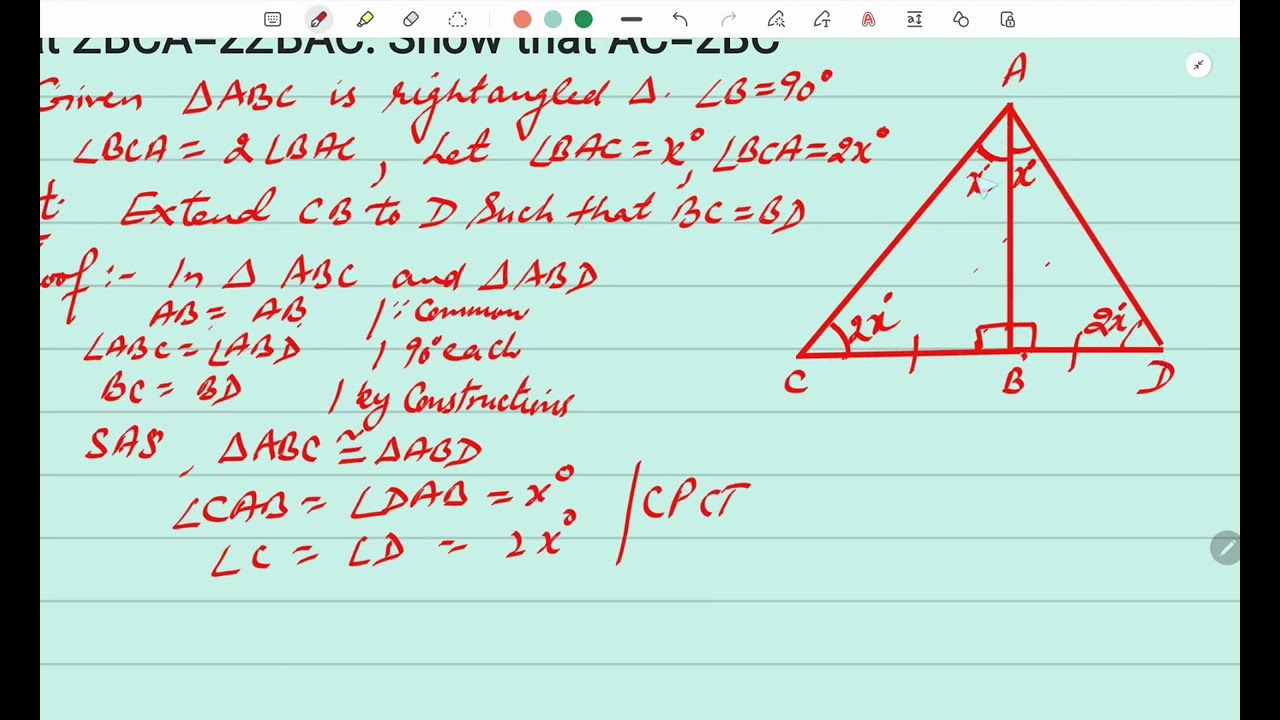 at ∠BCA=2∠BAC. Show that AC=2BC
Given ΔABC is rightangled Δ. ∠B=90°
∠BCA = 2∠BAC, Let ∠BAC=x°, ∠BCA=2x°
t. Extend CB to D Such that BC=BD
oof :- In Δ ABC and ΔABD
AB = AB |∵ Common
∠ABC = ∠ABD | 90° each
BC = BD | by Constructions
SAS, ΔABC ≅ ΔABD
∠CAB = ∠DAB = x° | CPCT
∠C = ∠D = 2x°
A
x° x°
2x° 2x°
C B D